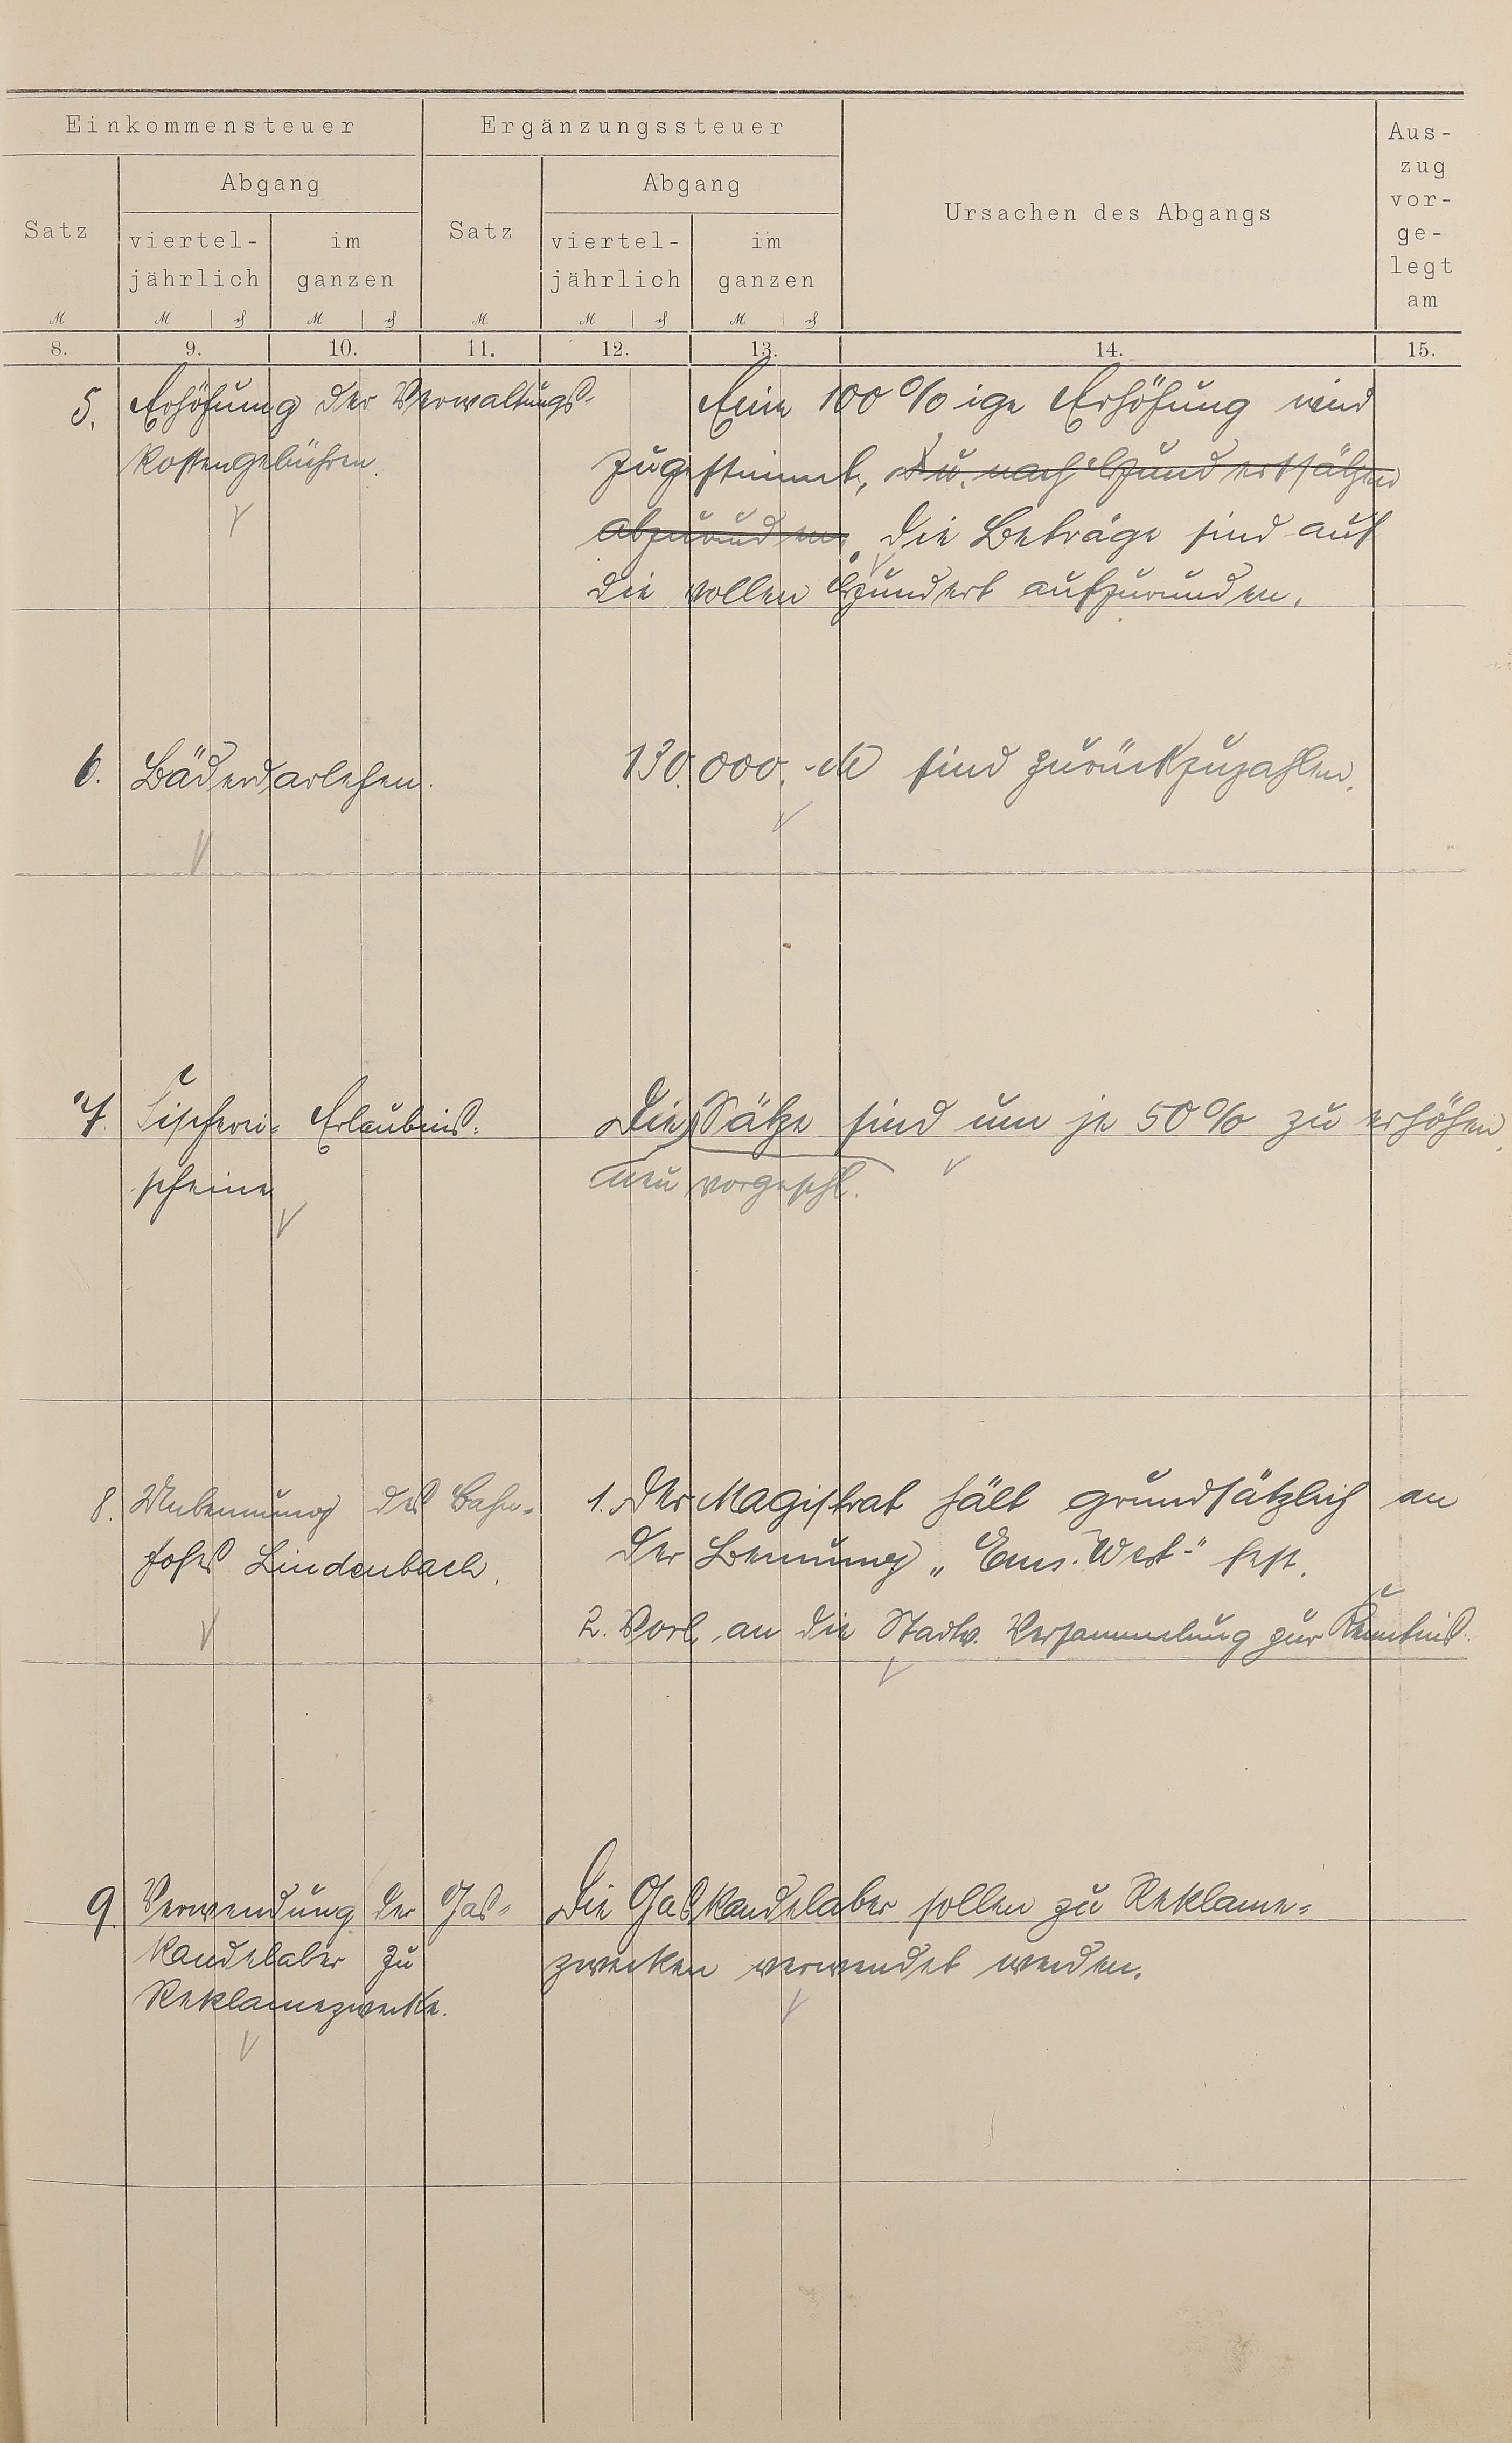 Einkommensteuer
Ergänzungssteuer
Ursachen des Abgangs
Aus-
zug
vor-
ge-
legt
am
Satz
Abgang
Satz
Abgang
viertel-
jährlich
im
ganzen
viertel-
jährlich
im
ganzen
M
M
₰
M
₰
M
M
₰
M
₰
8.
9.
10.
11.
12.
13.
14.
15.
5. Erhöhung der Verwaltungs-
kostengebühren.
Eine 100 % ige Erhöhung wird
zugestimmt, u. nach Hundertsätzen
abzurunden. Die Beträge sind auf
die vollen Hundert aufzurunden.
6. Bäderdarlehen.
130.000.- M sind zurückzuzahlen.
7. Fischerei- Erlaubnis-
scheine
Die Sätze sind um je 50 % zu erhöhen.
neu vorgeschl.
8. Umbenennung des Bahn-
hofes Lindenbach.
1. Der Magistrat hält grundsätzlich an
der Benennung „Ems-West" fest.
2. Vorl. an die Stadtv. Versammlung zur Kenntnis.
9. Verwendung der Gas-
kandelaber zu
Reklamezwecke.
Die Gaskandelaber sollen zu Reklame-
zwecken verwendet werden.